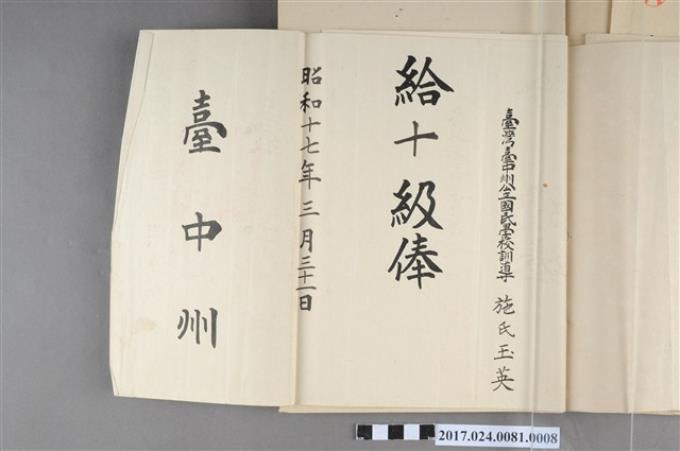 臺灣臺中州公立國民學校訓導 施氏玉英
給十級俸
昭和十七年三月三十一日
臺中州
2017.024.0081.0008